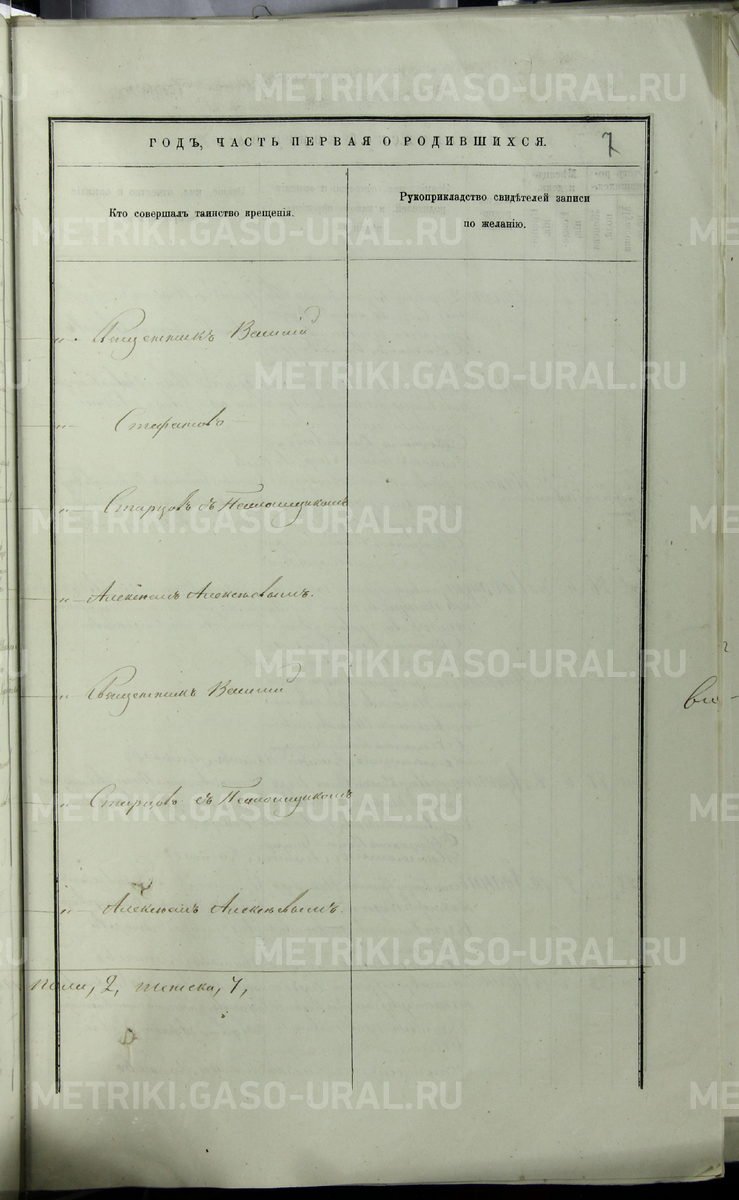 ГОДЪ, ЧАСТЬ ПЕРВАЯ О РОДИВШИХСЯ.
7
Кто совершалъ таинство крещенія.
Рукоприкладство свидѣтелей записи
по желанію.
Священникъ Василій
Стефановъ
Старцовъ съ Псаломщикомъ
Алексѣемъ Алексѣевымъ.
Священникъ Василій
Старцовъ съ Псаломщикомъ
Алексѣемъ Алексѣевымъ.
пола, 2, женска,
METRIKI.GASO-URAL.RU